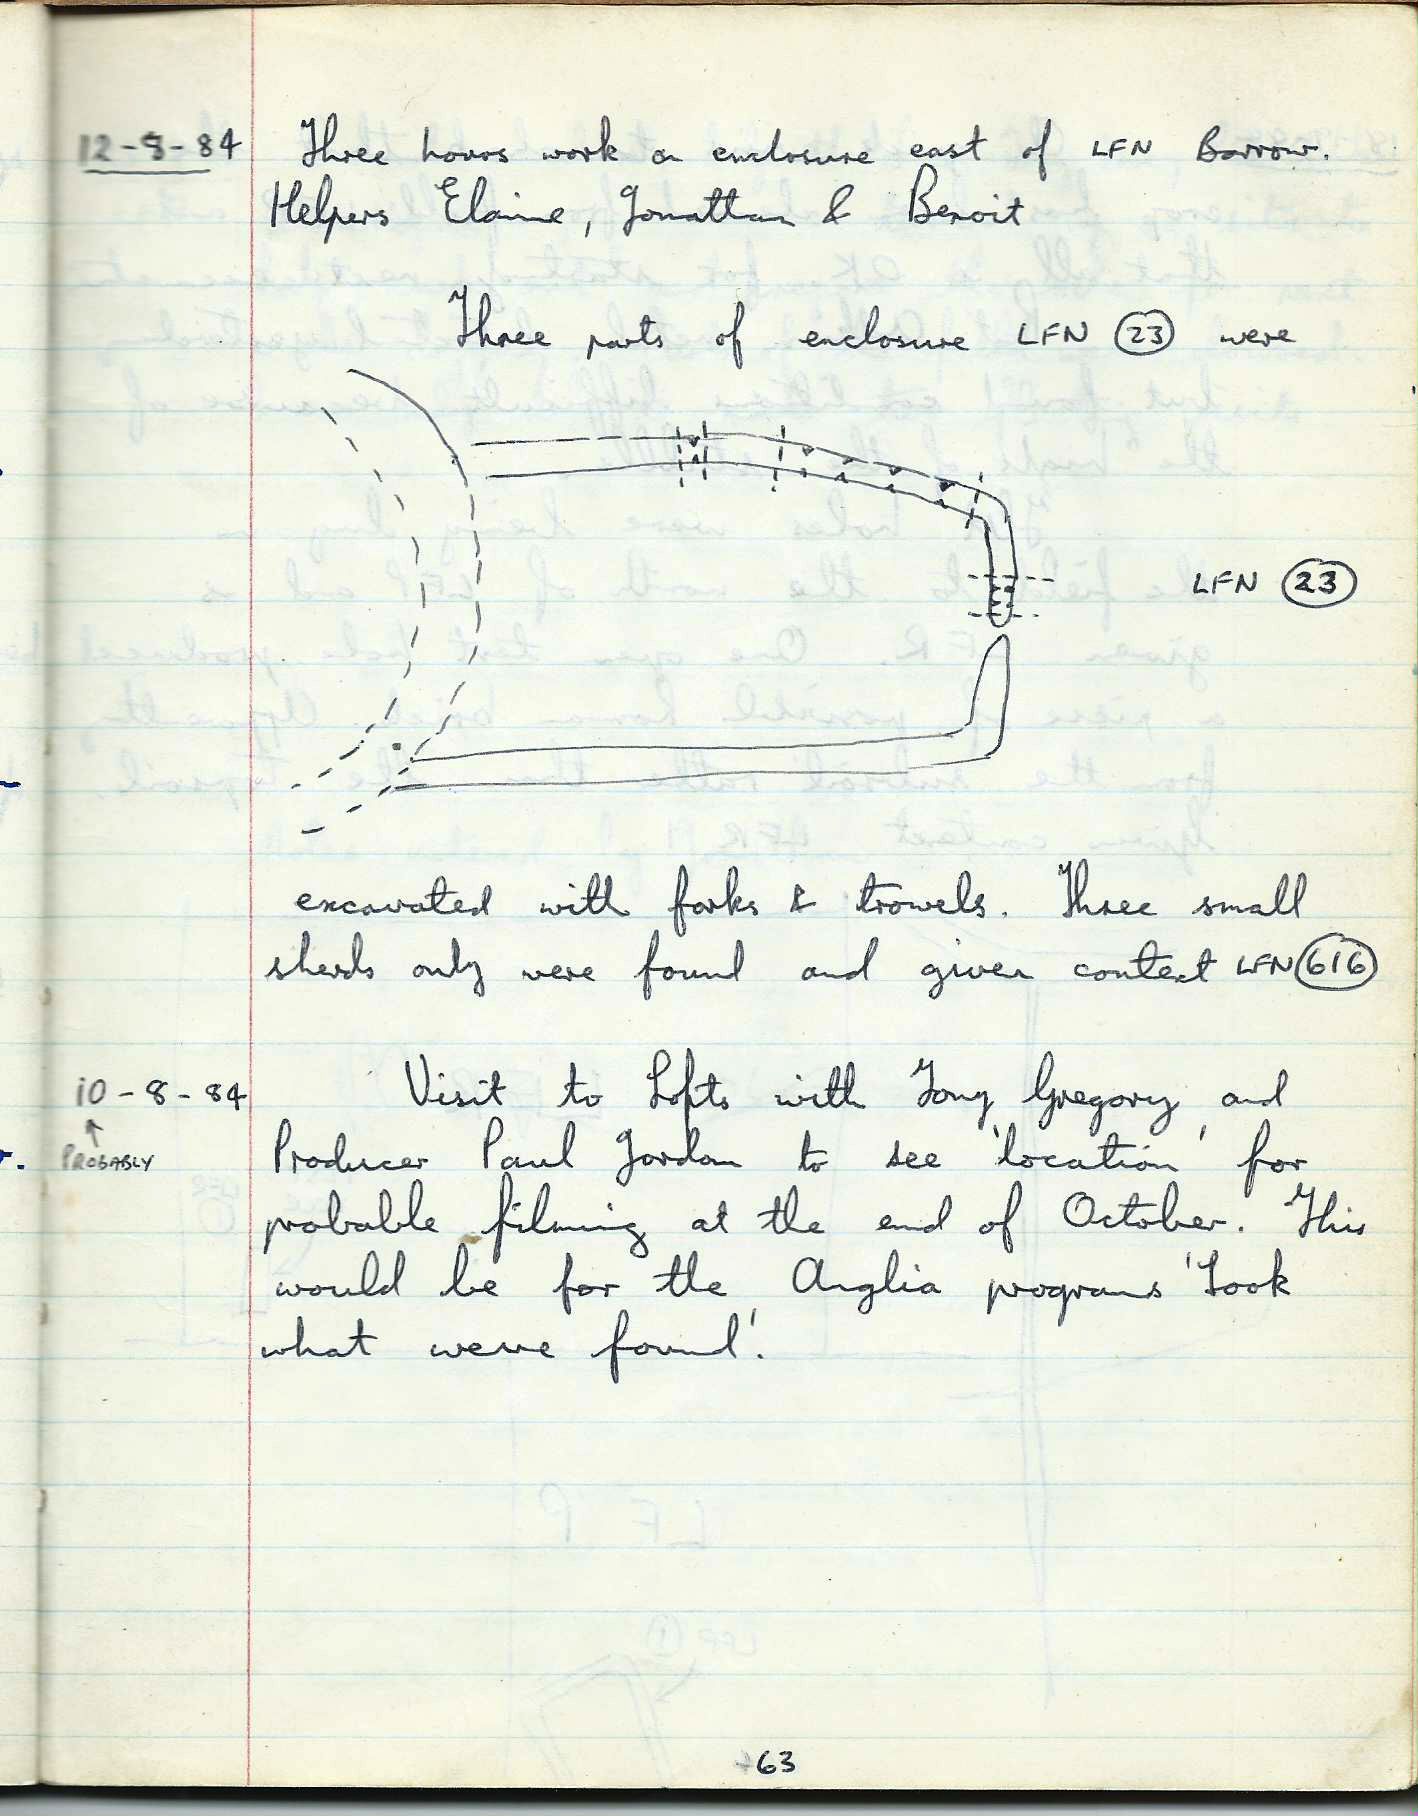 12-8-84 Three hours work on enclosure east of LFN Barrow.
Helpers Elaine, Jonathan & Benoit
Three parts of enclosure LFN 23 were
LFN 23
excavated with forks & trowels. Three small
sherds only were found and given context LFN 616
10-8-84 Visit to Lofts with Tony Gregory and
PROBABLY
Producer Paul Jordan to see 'location' for
probable filming at the end of October. This
would be for the Anglia program 'Look
what weve found'.
63